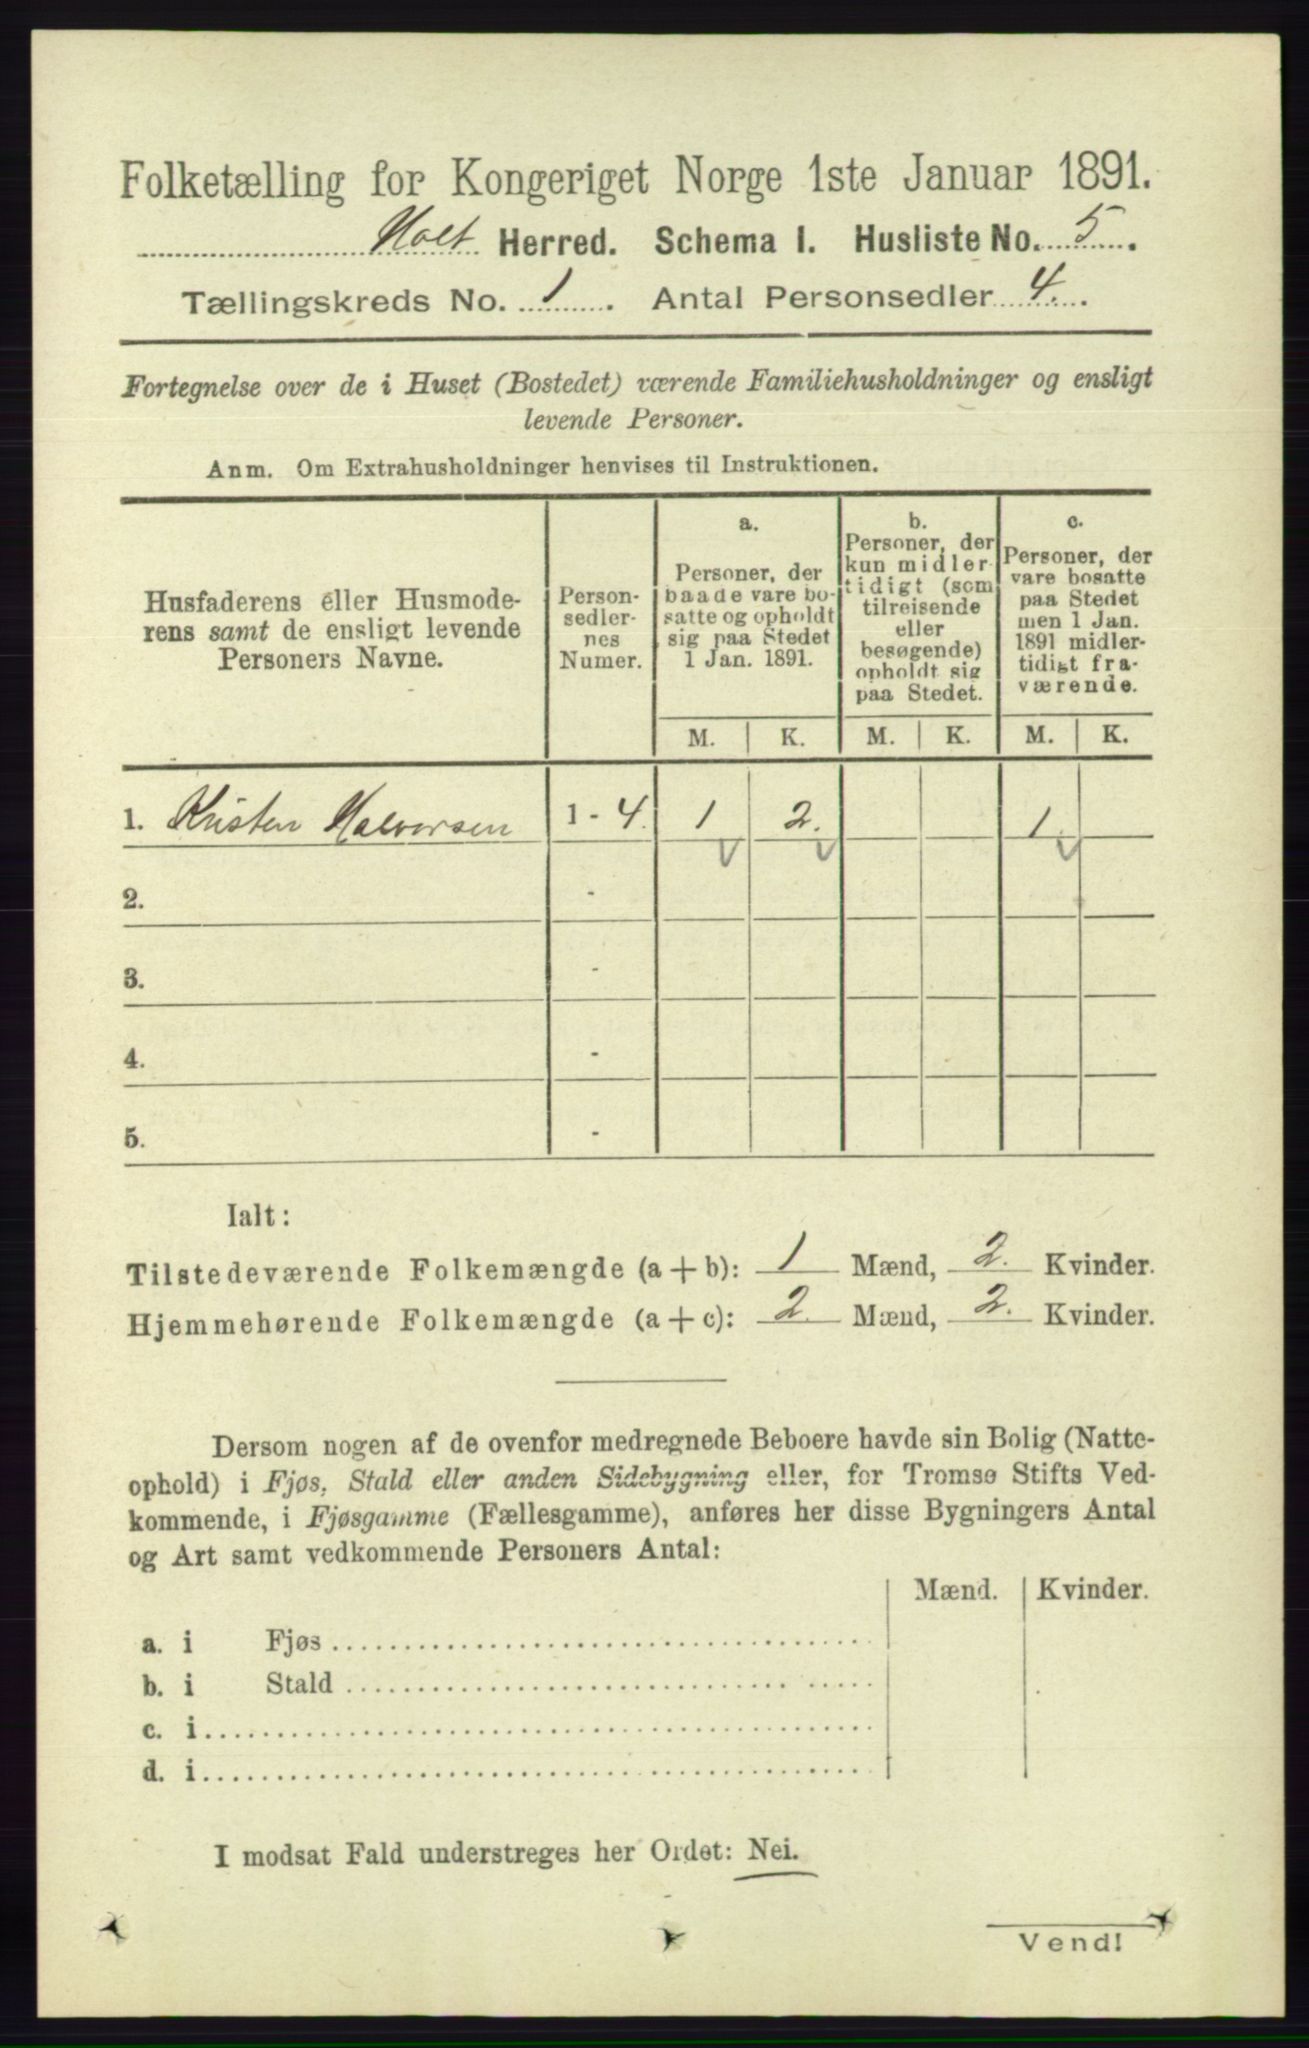 Folketælling for Kongeriget Norge 1ste Januar 1891.
Holt Herred. Schema I. Husliste No. 5.
Tællingskreds No. 1. Antal Personsedler 4.
Fortegnelse over de i Huset (Bostedet) værende Familiehusholdninger og ensligt
levende Personer.
Anm. Om Extrahusholdninger henvises til Instruktionen.
Husfaderens eller Husmode-
rens samt de ensligt levende
Personers Navne.
Person-
sedler-
nes
Numer.
a.
Personer, der
baade vare bo-
satte og opholdt
sig paa Stedet
1 Jan. 1891.
b.
Personer, der
kun midler-
tidigt (som
tilreisende
eller
besøgende)
opholdt sig
paa Stedet.
c.
Personer, der
vare bosatte
paa Stedet
men 1 Jan.
1891 midler-
tidigt fra-
værende.
M. K. M. K. M. K.
1. Kristen Halvorsen 1 - 4. 1 2. 1.
2. -
3. -
4. -
5. -
Ialt:
Tilstedeværende Folkemængde (a + b): 1 Mænd, 2. Kvinder.
Hjemmehørende Folkemængde (a + c): 2. Mænd, 2. Kvinder.
Dersom nogen af de ovenfor medregnede Beboere havde sin Bolig (Natte-
ophold) i Fjøs, Stald eller anden Sidebygning eller, for Tromsø Stifts Ved-
kommende, i Fjøsgamme (Fællesgamme), anføres her disse Bygningers Antal
og Art samt vedkommende Personers Antal:
Mænd. Kvinder.
a. i Fjøs
b. i Stald
c. i
d. i
I modsat Fald understreges her Ordet: Nei.
Vend!